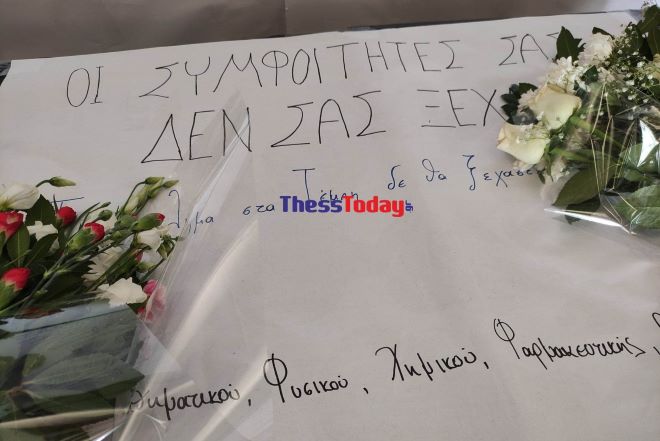 ΟΙ ΣΥΜΦΟΙΤΗΤΕΣ ΣΑΣ
ΔΕΝ ΣΑΣ ΞΕΧ
στα Τέμπη δε θα ξεχασ
ThessToday.gr
θηματικού, Φυσικού, Χημικού, Φαρμακευτικής,